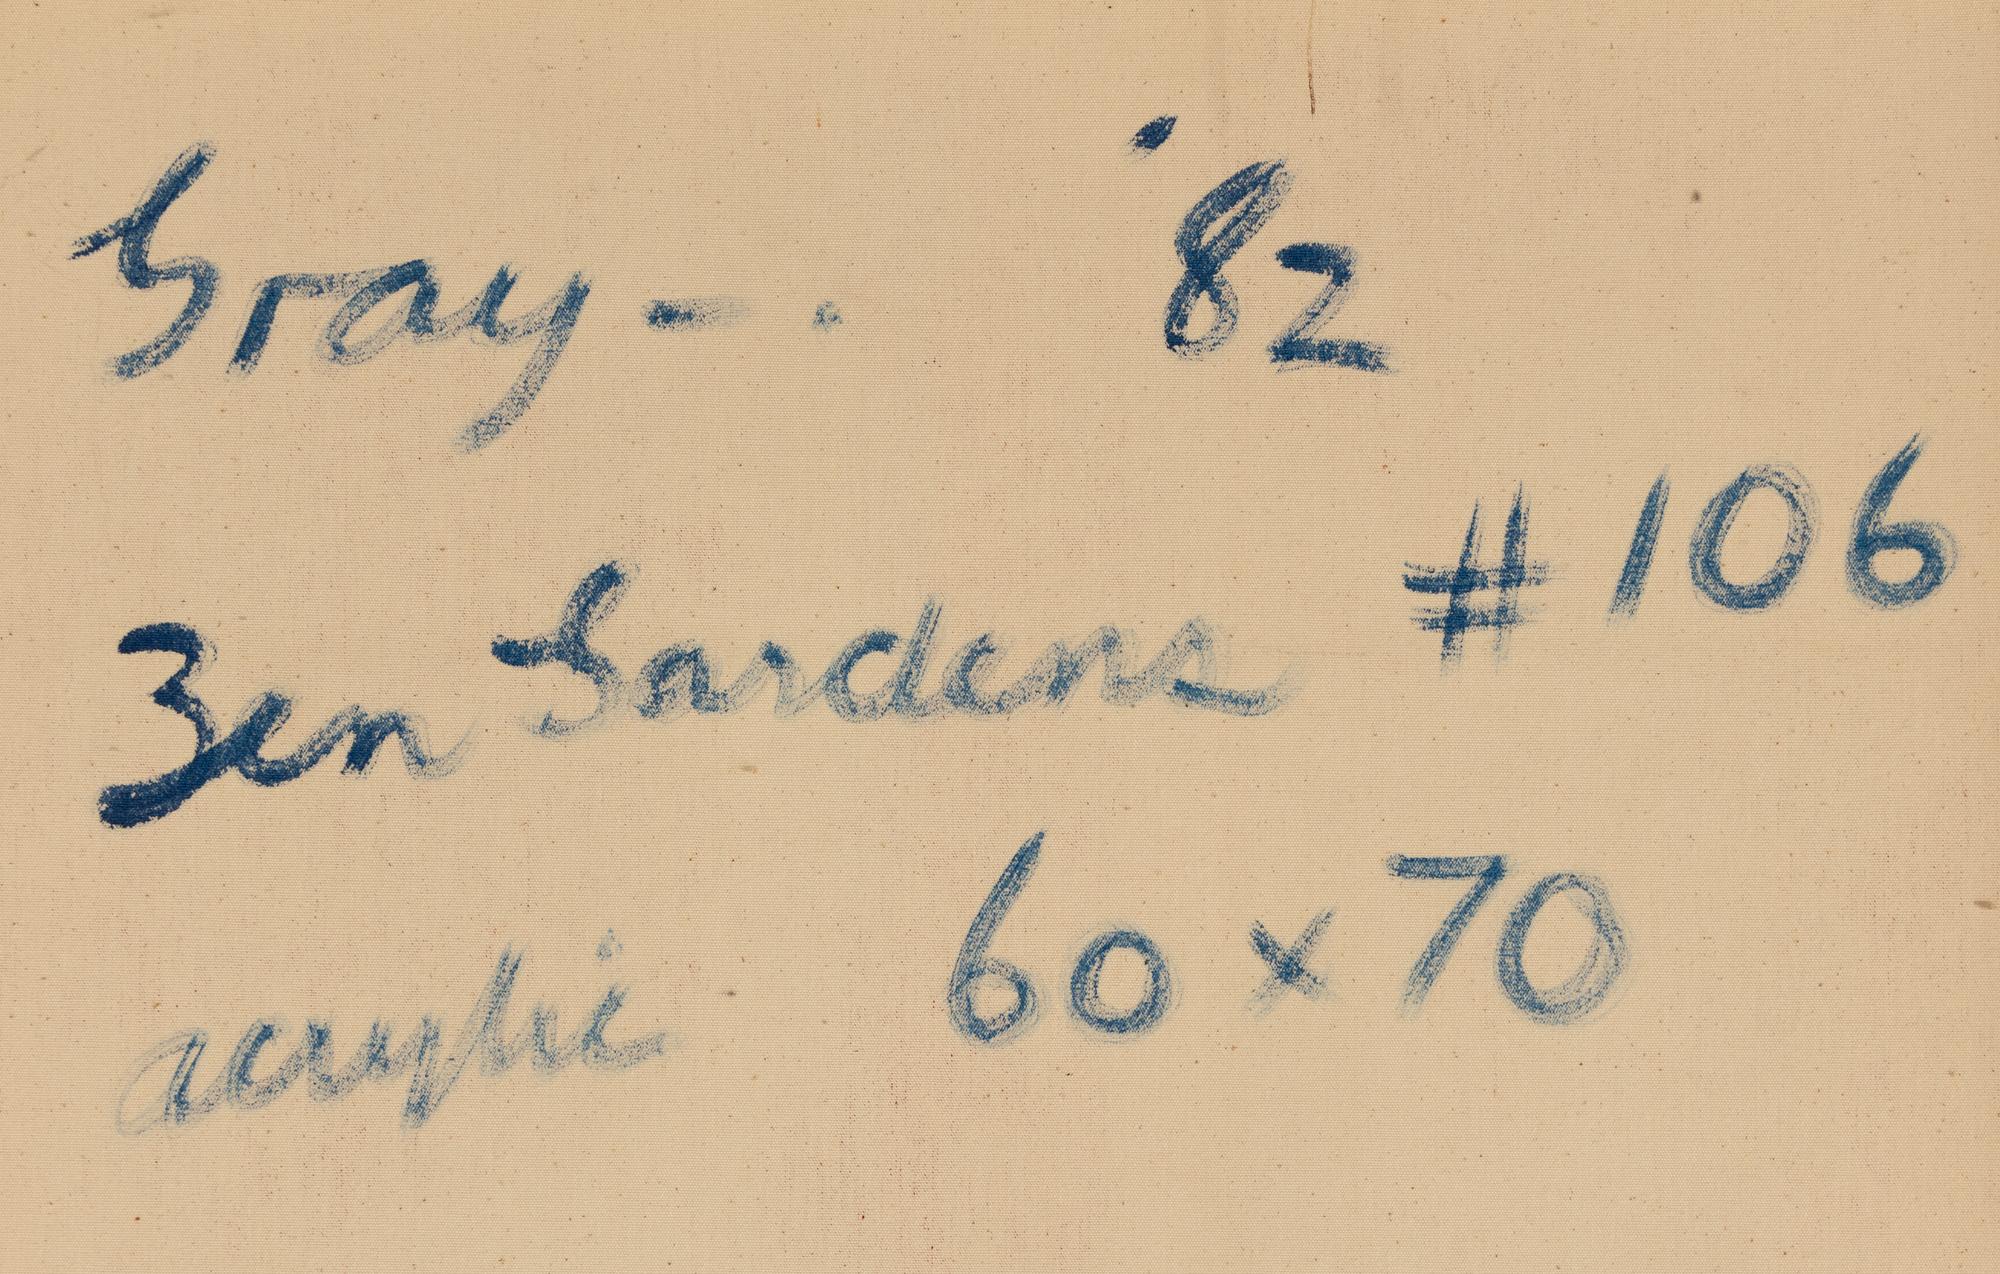 Gray - . '82
Zen Gardens #106
acrylic 60 x 70